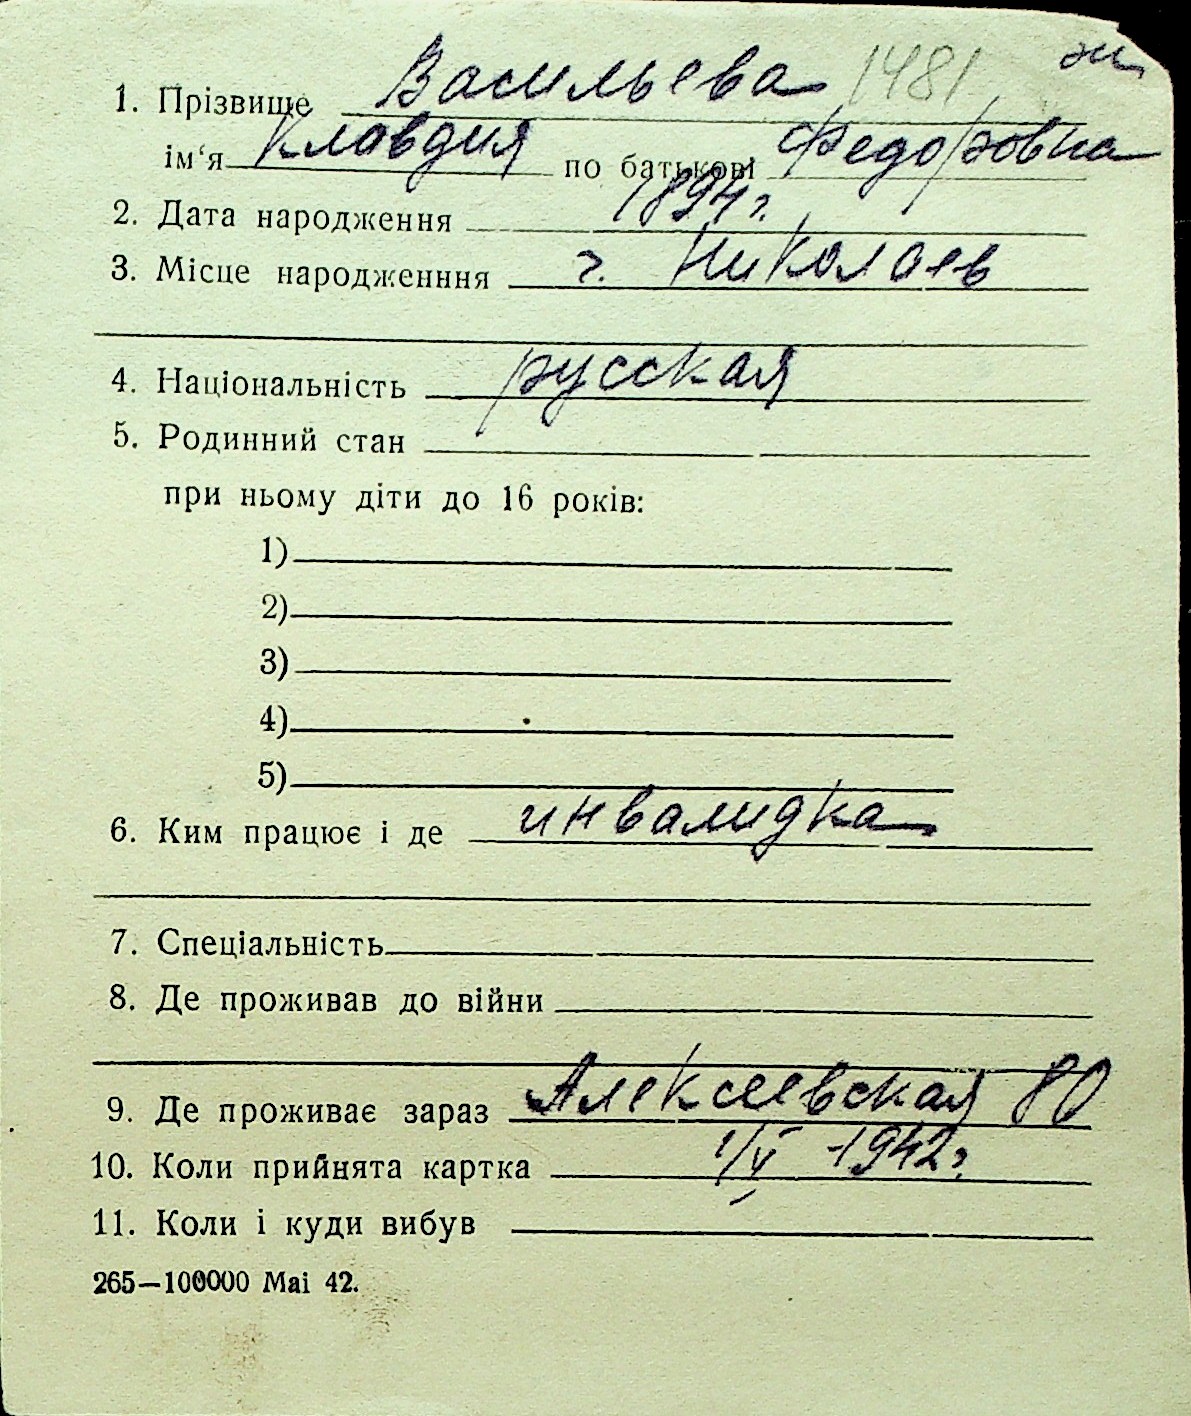 1. Прізвище Васильева 1481
ім'я Клавдия по батькові Федоровна
2. Дата народження 1894 г.
3. Місце народженння г. Николаев
4. Національність русская
5. Родинний стан
при ньому діти до 16 років:
1)
2)
3)
4)
5)
6. Ким працює і де инвалидка
7. Спеціальність
8. Де проживав до війни
9. Де проживає зараз Алексеевская 80
10. Коли прийнята картка 1/V 1942 г.
11. Коли і куди вибув
265—100000 Mai 42.